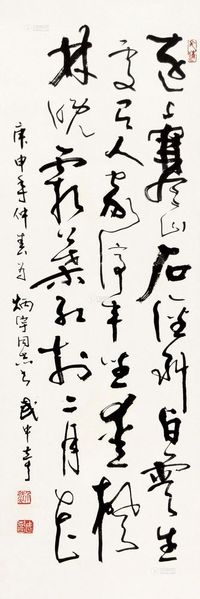 遠上寒山石徑斜白雲生
處有人家停车坐愛楓
林晚霜葉红於二月花
庚申年仲春为炳宇同志书武中奇